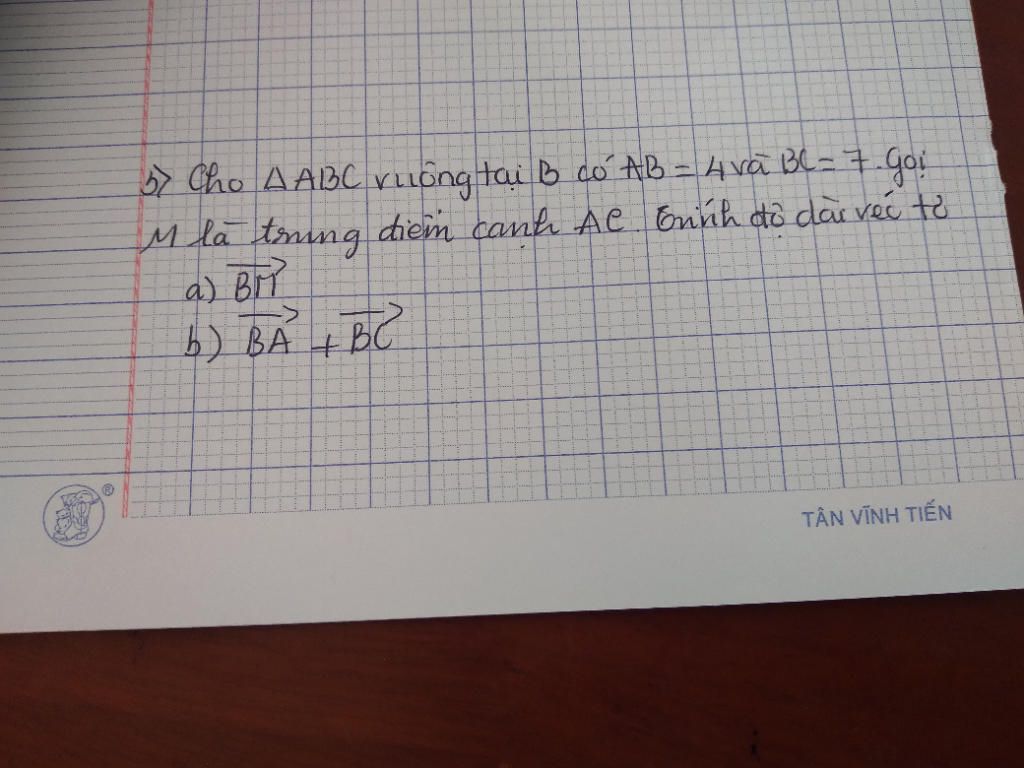 5> Cho ΔABC vuông tại B có AB = 4 và BC = 7. Gọi
M là trung điểm cạnh AC. Tính độ dài véc tơ
a) BM
b) BA + BC
TÂN VĨNH TIẾN
®